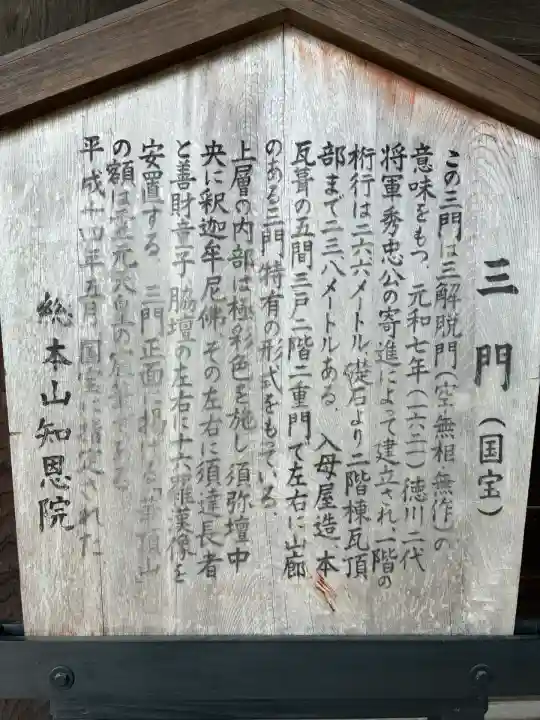 三門(国宝)
この三門は三解脱門(空・無相・無作)の
意味をもつ。元和七年(一六二一)徳川二代
将軍秀忠公の寄進によって建立され、一階の
桁行は二六・六メートル 礎石より二階棟瓦頂
部まで二三・八メートルある。入母屋造 本
瓦葺の五間三戸二階二重門で左右に山廊
のある三門 特有の形式をもている。
上層の内部は極彩色を施し須弥壇中
央に釈迦牟尼佛 その左右に須達長者
と善財童子 脇壇の左右に十六羅漢像を
安置する。三門正面に掲げる「華頂山」
の額は霊元天皇の宸筆である。
平成十四年五月 国宝に指定された
総本山知恩院